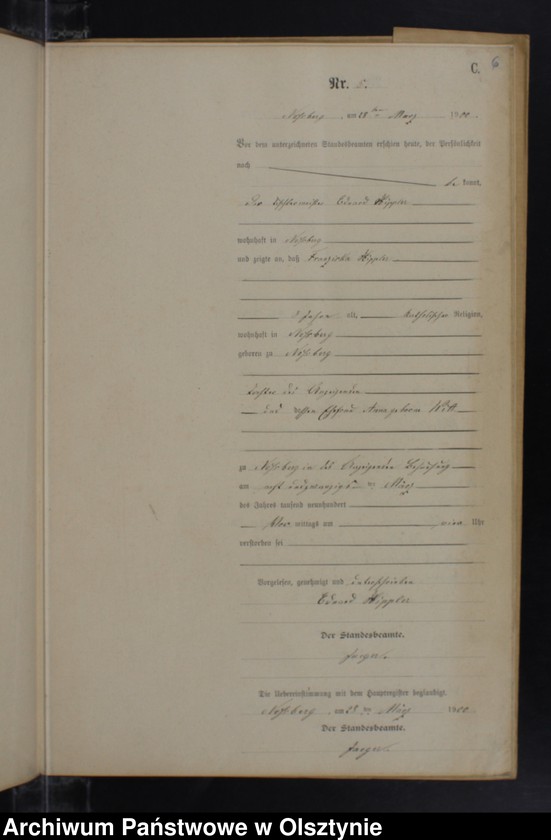 C. 6
Nr. 5.
Noßberg, am 28 ten März 1900.
Vor dem unterzeichneten Standesbeamten erschien heute, der Persönlichkeit
nach
be kannt,
der Tischlermeister Eduard Wippler
wohnhaft in Noßberg
und zeigte an, daß Franziska Wippler
Jahre alt, katholischer Religion,
wohnhaft in Noßberg
geboren zu Noßberg
Tochter des Anzeigenden
und dessen Ehefrau Anna geborene Witt
zu Noßberg in des Anzeigenden Behausung
am acht und zwanzigsten März
des Jahres tausend neunhundert
Vor mittags um Uhr
verstorben sei
Vorgelesen, genehmigt und unterschrieben
Eduard Wippler
Der Standesbeamte.
Die Uebereinstimmung mit dem Hauptregister beglaubigt.
Noßberg, am 28. März 1900.
Der Standesbeamte.
Archiwum Państwowe w Olsztynie